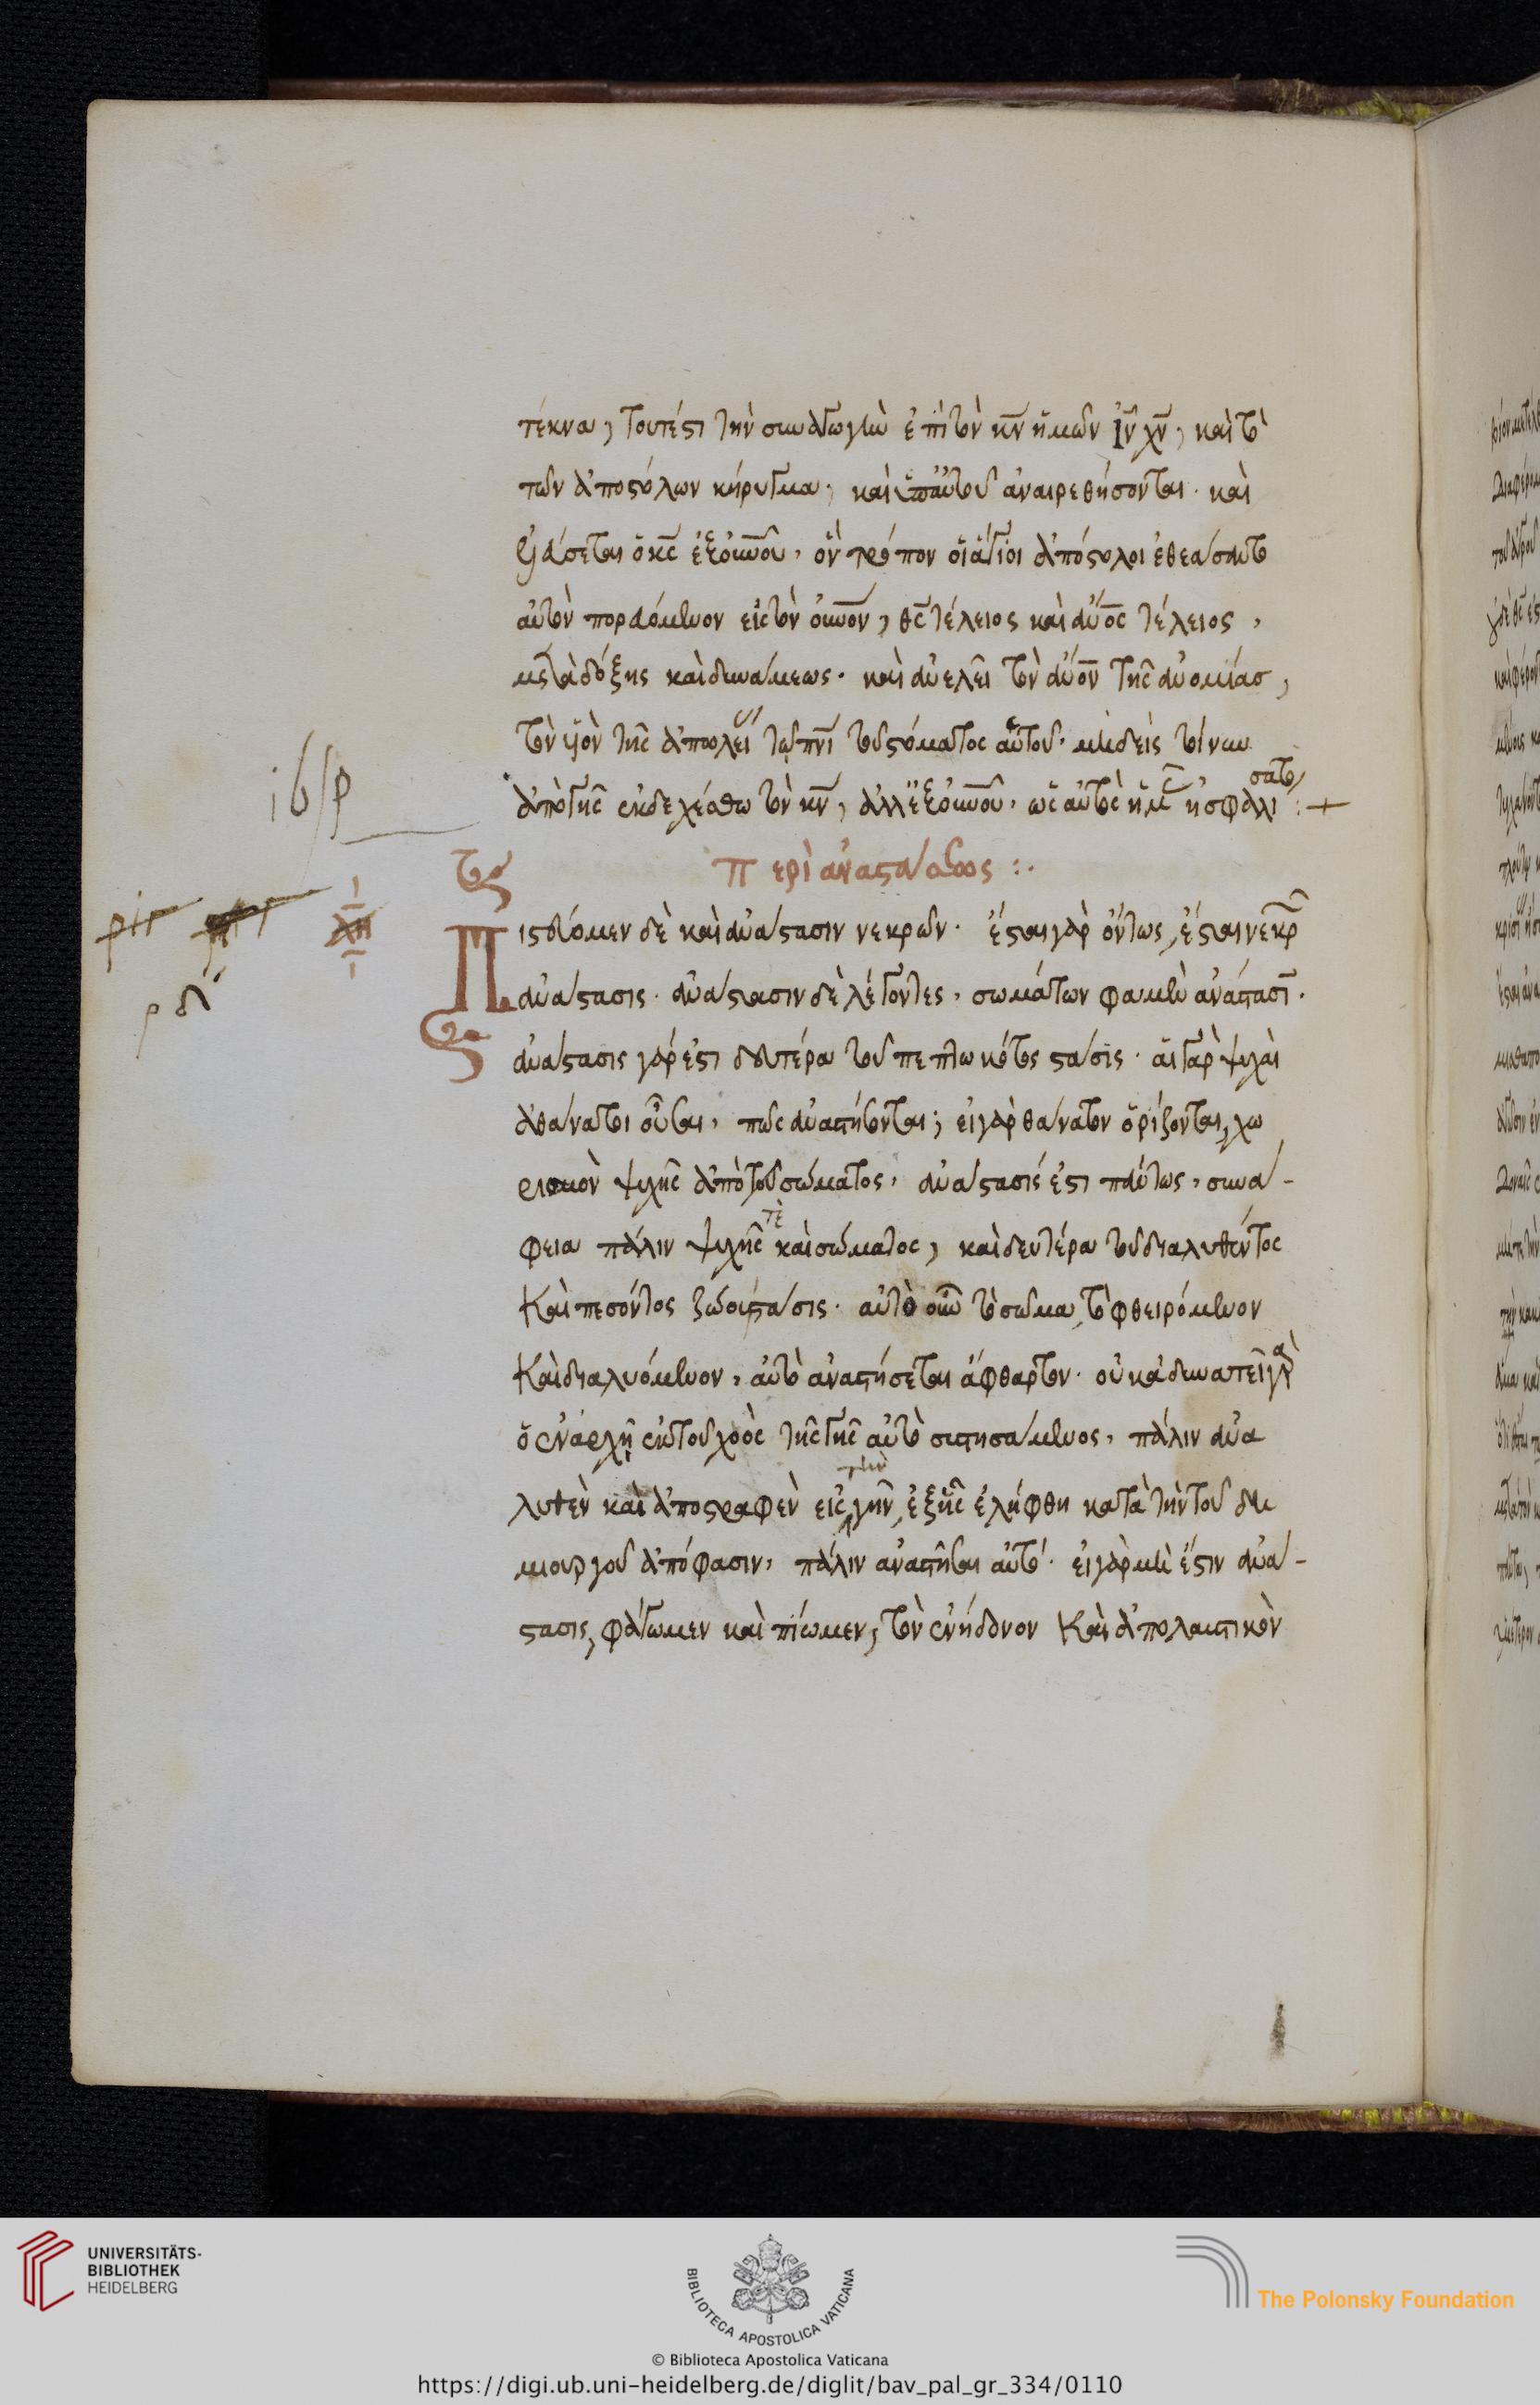 τέκνα, τουτέστι τὴν συναγωγὴν ἐπὶ τὸν κν ἡμῶν ιν χν, καὶ τὸ
τῶν ἀποστόλων κήρυγμα, καὶ ὑπ' αὐτοῦ ἀναιρεθήσονται. καὶ
ὁ κς ἐξ οὐνου. ὃν τρόπον οἱ ἅγιοι ἀπόστολοι ἐθεάσαντο
αὐτὸν πορευόμενον εἰς τὸν οὐνον, θς τέλειος καὶ ανος τέλειος,
μετὰ δόξης καὶ δυνάμεως. καὶ ἀνελεῖ τὸν ανον τῆς ἀνομίας,
τὸν υἱὸν τῆς ἀπωλεί τῷ πνι τοῦ στόματος αὐτοῦ. μηδεὶς τοίνυν
ἀπὸ γῆς ἐκδεχέσθω τὸν κν, ἀλλ' ἐξ οὐνου. ὡς αὐτὸς ἡμ ἠσφαλί
σατο :+
ιδ/ρ
Περὶ ἀναστάσεως :.
ριγ
ρδ
Πιστεύομεν δὲ καὶ ἀνάστασιν νεκρῶν. ἔσται γὰρ ὄντως, ἔσται νεκρ
ἀνάστασις. ἀνάστασιν δὲ λέγοντες, σωμάτων φαμὲν ἀνάστασι.
ἀνάστασις γάρ ἐστι δευτέρα τοῦ πεπτωκότος στάσις. αἱ γὰρ ψυχαὶ
ἀθάνατοι οὖσαι, πῶς ἀναστήσονται; εἰ γὰρ θάνατον ὁρίζονται, χω
ρισμὸν ψυχῆς ἀπὸ τοῦ σώματος, ἀνάστασίς ἐστι πάντως, συνά-
φεια πάλιν ψυχῆς τὲ καὶ σώματος, καὶ δευτέρα τοῦ διαλυθέντος
καὶ πεσόντος ζώου στάσις. αὐτὸ οὖν τὸ σῶμα, τὸ φθειρόμενον
καὶ διαλυόμενον, αὐτὸ ἀναστήσεται ἄφθαρτον. οὐκ ἀδυνατεῖ γὰρ
ὁ ἐν ἀρχῇ ἐκ τοῦ χοὸς τῆς γῆς αὐτὸ συστησάμενος, πάλιν ἀνα
λυθὲν καὶ ἀποστραφὲν εἰς τὴν γῆν, ἐξ ἧς ἐλήφθη κατὰ τὴν τοῦ δη
μιουργοῦ ἀπόφασιν, πάλιν ἀναστῆσαι αὐτό. εἰ γὰρ μὴ ἔστιν ἀνά-
στασις, φάγωμεν καὶ πίωμεν, τὸν ἐνήδονον καὶ ἀπολαυστικὸν
UNIVERSITÄTS-
BIBLIOTHEK
HEIDELBERG
BIBLIOTECA APOSTOLICA VATICANA
The Polonsky Foundation
© Biblioteca Apostolica Vaticana
https://digi.ub.uni-heidelberg.de/diglit/bav_pal_gr_334/0110